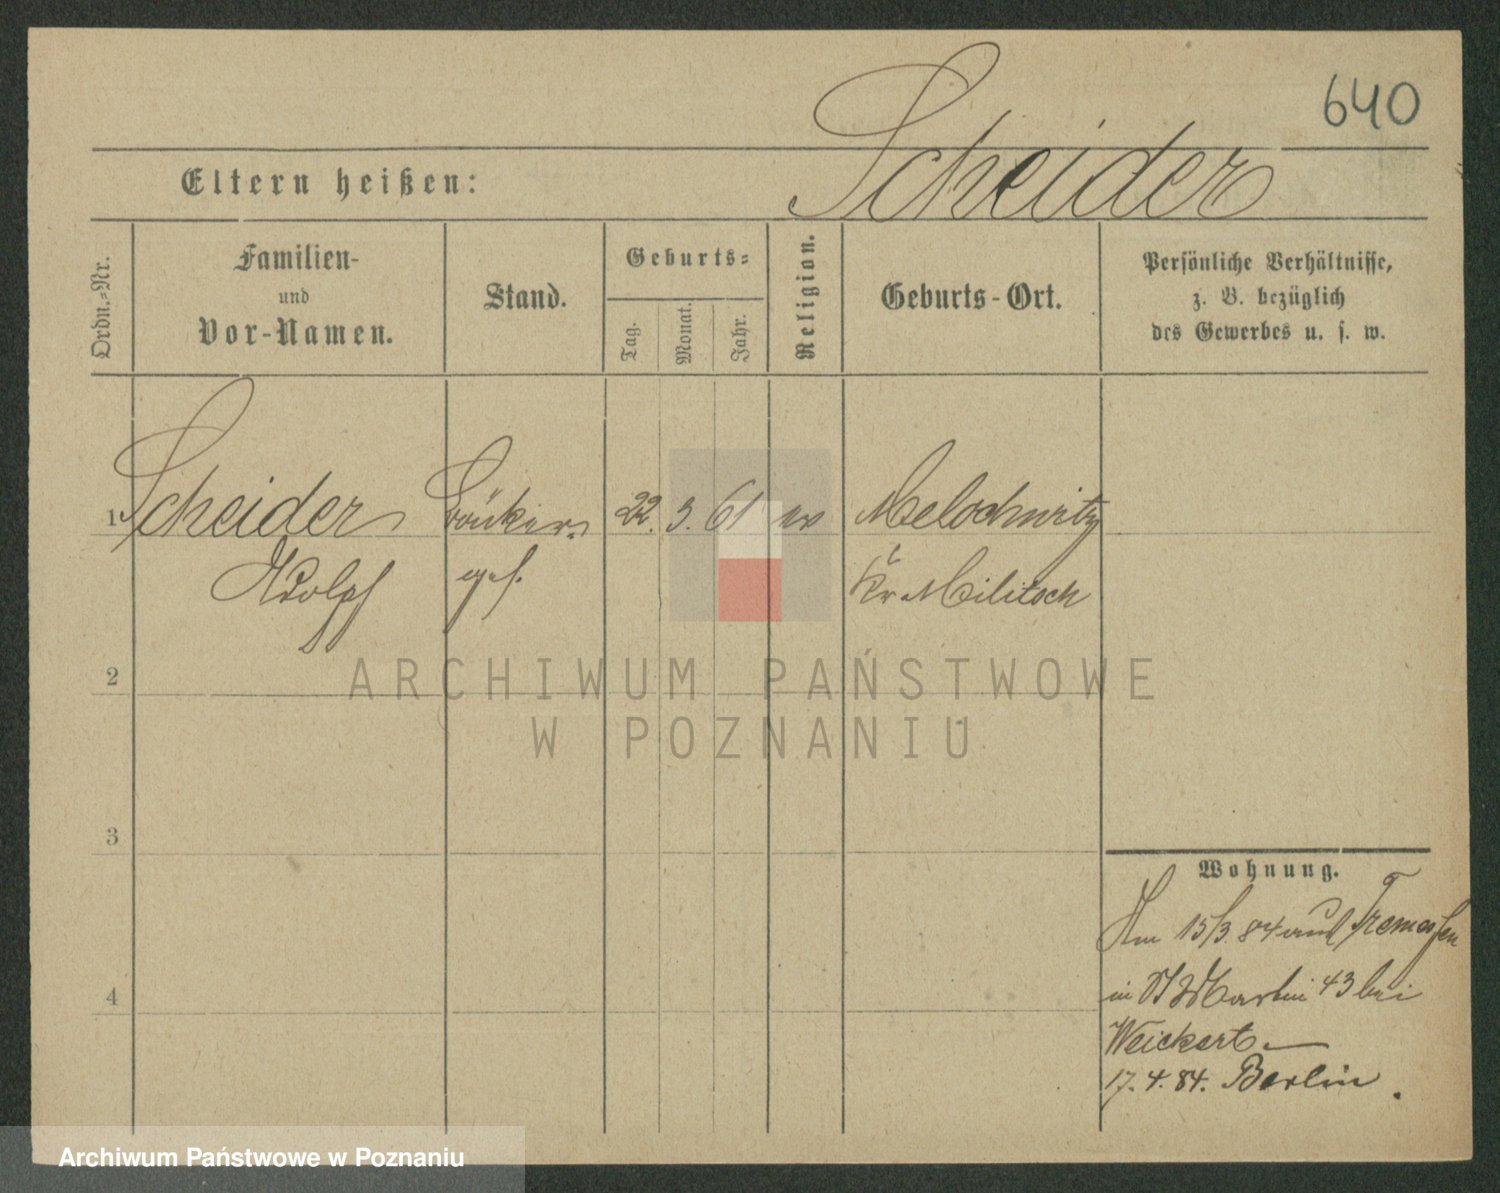 640
Scheider
Eltern heißen:
Ordn.=Nr.
Familien-
und
Vor-Namen.
Stand.
Geburts=
Tag.
Monat.
Jahr.
Religion.
Geburts-Ort.
Persönliche Verhältnisse,
z. B. bezüglich
des Gewerbes u. s. w.
1 Scheider Bäcker 22. 3. 61 ev Melochwitz
Adolph ges. Kr Militsch
2
ARCHIWUM PAŃSTWOWE
W POZNANIU
3
4
Wohnung.
Am 15/3 84 aus Tremessen
in St Martin 43 bei
Weickert
17. 4. 84. Berlin.
Archiwum Państwowe w Poznaniu